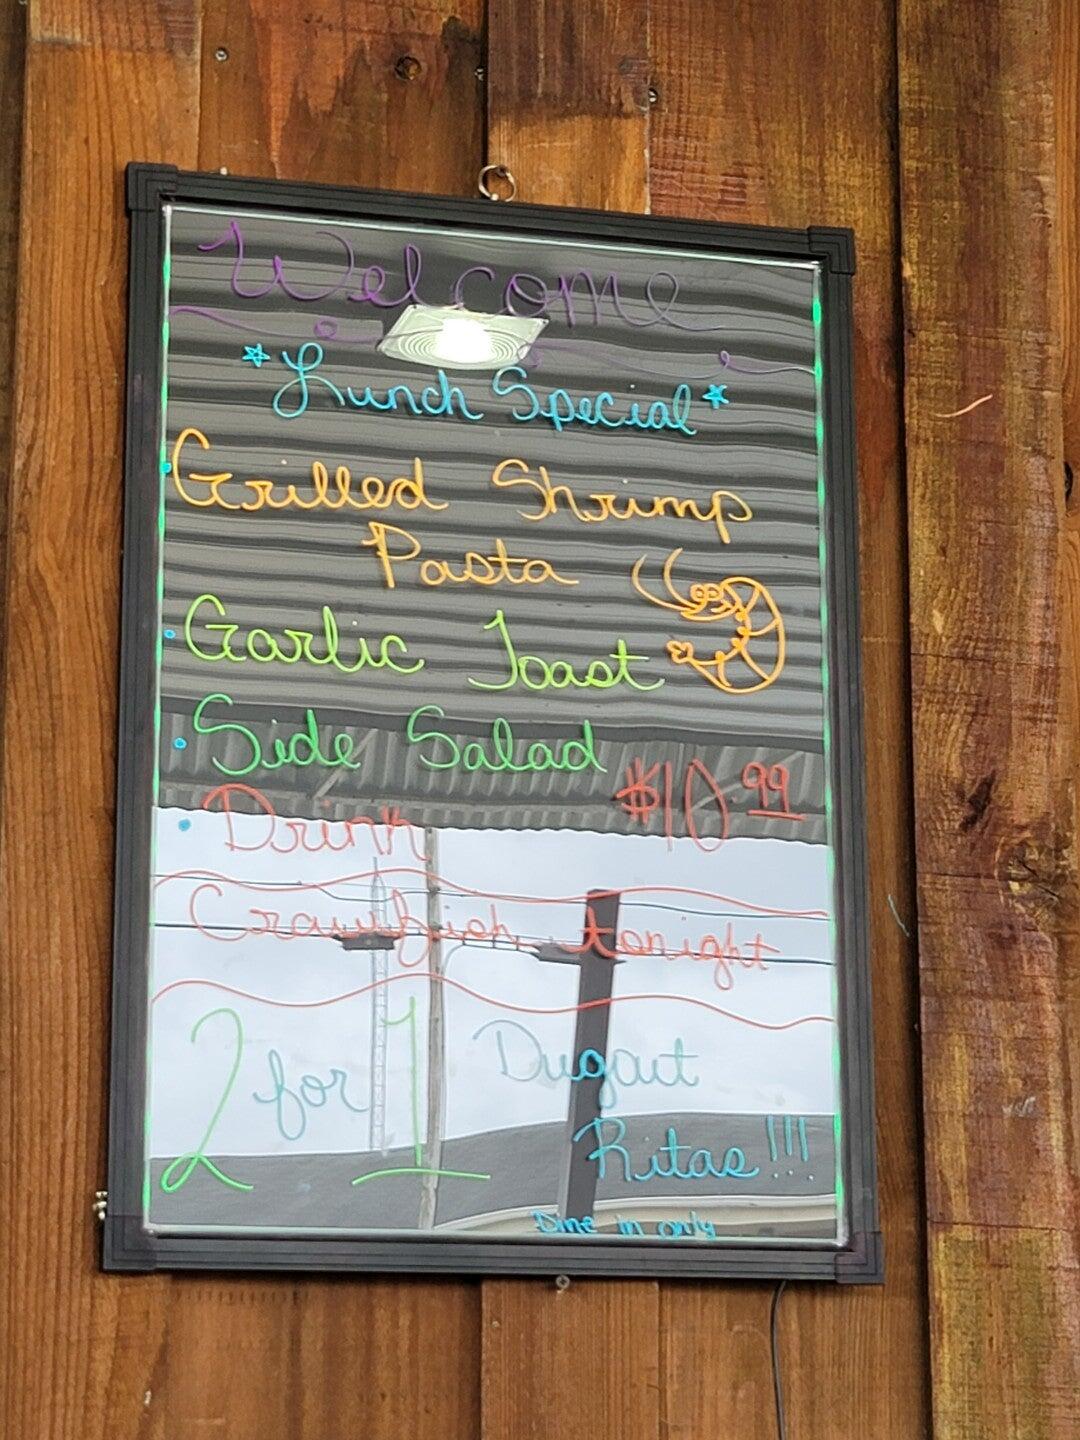 Welcome
*Lunch Special*
• Grilled Shrimp
Pasta
• Garlic Toast
• Side Salad
• Drink $10.99
Crawfish tonight
2 for 1 Dugout
Ritas!!!
Dine in only